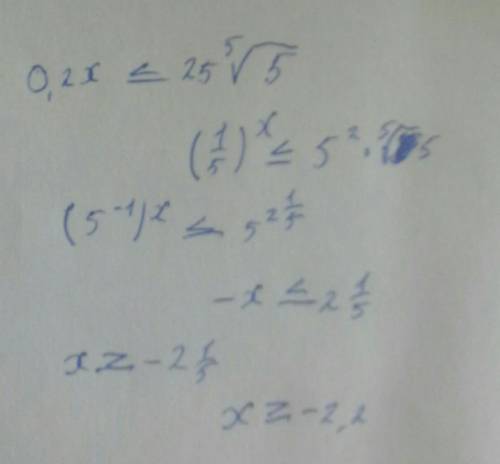 0,2x ≤ 25⁵√5
(1/5)ˣ ≤ 5² · ⁵√5
(5⁻¹)ˣ ≤ 5^(2 1/5)
-x ≤ 2 1/5
x ≥ -2 1/5
x ≥ -2,2